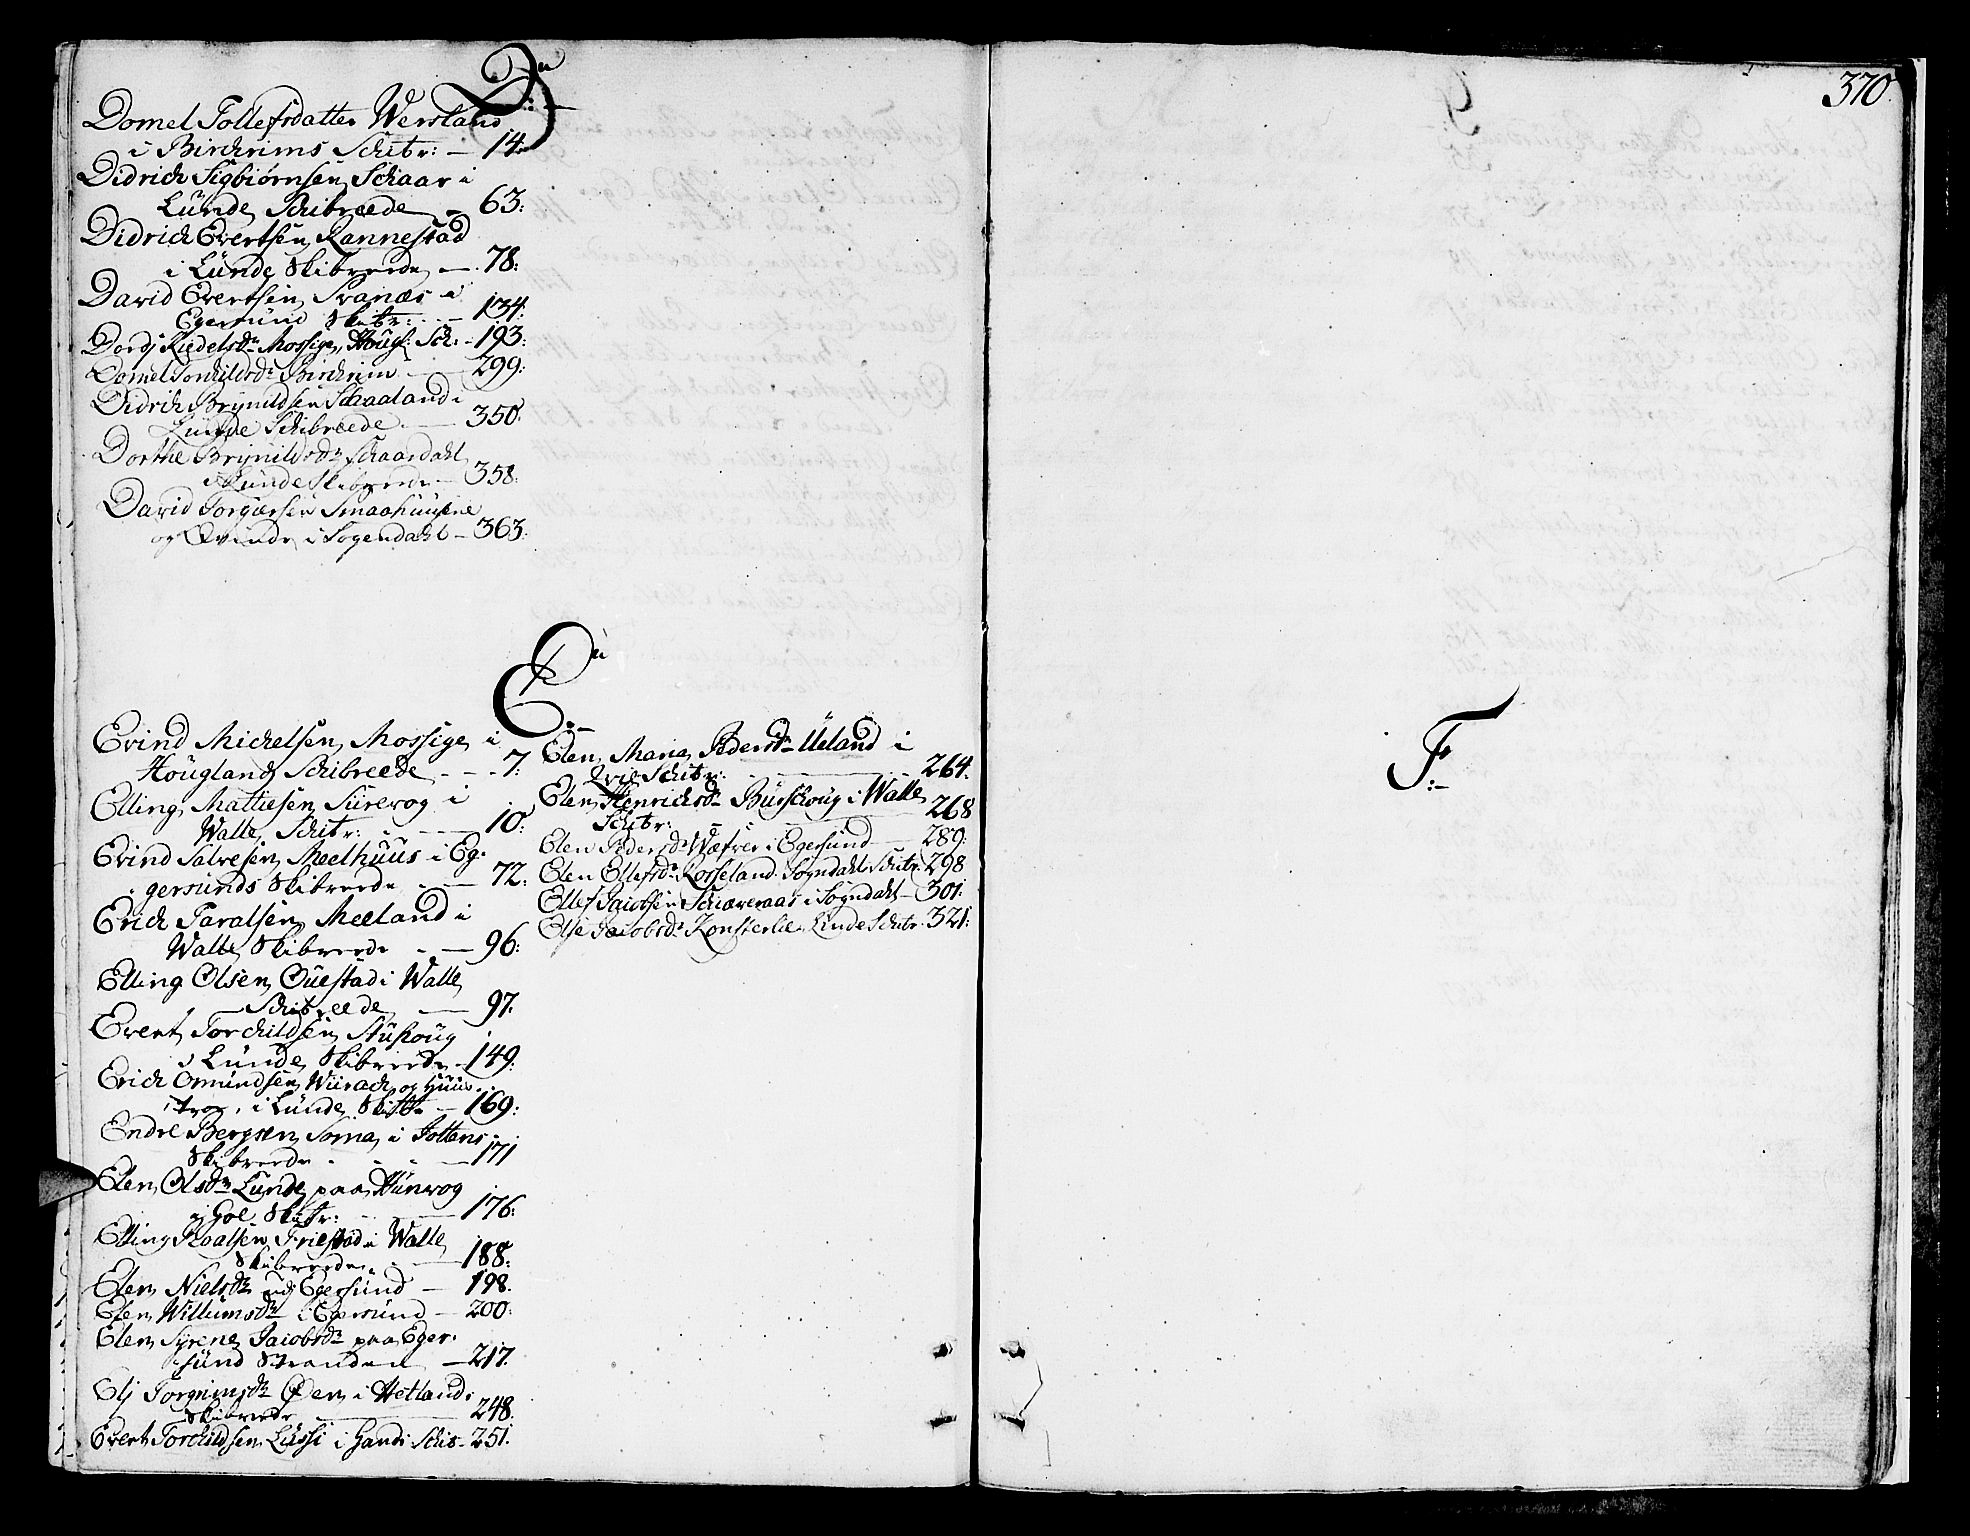 D:
Domel Tollefsdatter Wersland
i Birchrims Schibr: — 14:
Didrich Sigbiørnsen Schaar i
Lünde Schibreede — 63:
Didrich Evertsen Rannestad
i Lünde Skibreede — 78:
David Evertsen Svanæs i
Egersund Skibr: — 134:
Dordj Riedelsdr Mossige, Høugl: Sch: - 193:
Domel Torchildsdr Birchrim — 299:
Didrich Brynildsen Schaaland i
Lunde Schibreede — 350:
Dorthe Brynildsdr Schaardahl
i Lunde Skibreede — 358:
David Torgiersen Smaahuusene
og Qvinde i Sogendahl — 363:
E:
Evind Michelsen Mossige i
Höugland Schibreede - - - 7:
Elling Mattiesen Sürevog i
Walle Schibr: - - — 10:
Evind Salvesen Meelhuus i Eg:
gersunds Skibreede - — 72:
Erich Taralsen Meeland i
Walle Skibreede - — 96:
Elling Olsen Ouestad i Walle
Schibreede — 97.
Evert Torchildsen Stuhoug
i Lünde Skibreede - 149:
Erich Omündsen Wiirach og Huus-
troe, i Lünde Skibr — 169:
Endre Bergsen Soma i Jottens
Skibreede - - - — 171
Elen Olsdr Lünde paa Hünwog
i Goe Skibr: — 176:
Elling Roalsen Friestad i Walle
Skibreede - — 188:
Elen Nielsdr udj Egersund — 198.
Elen Willumsdr i Egersund — 200:
Elen Syrene Jacobsdr paa Eger-
sünd Stranden — 217.
Elj Torgrimsdr Øen i Hetlands
Skibreede — 248.
Evert Torchildsen Lussi i Gands Schib - 251.
Elen Maria Pedersdr Üeland i
Qvie Schibr: — 264.
Elen Henrichsdr Bürschoug i Walle
Schibr: — 268
Elen Pedersdr Wæfver i Egersund — 289:
Elen Ellefsdr Rosseland Sogndahls Schibr. 298
Ellef Jacobsen Schiæveraas i Sogndahl — 301:
Else Jacobsdr Konsterlie Lunde Schibr. 321:
370.
F: